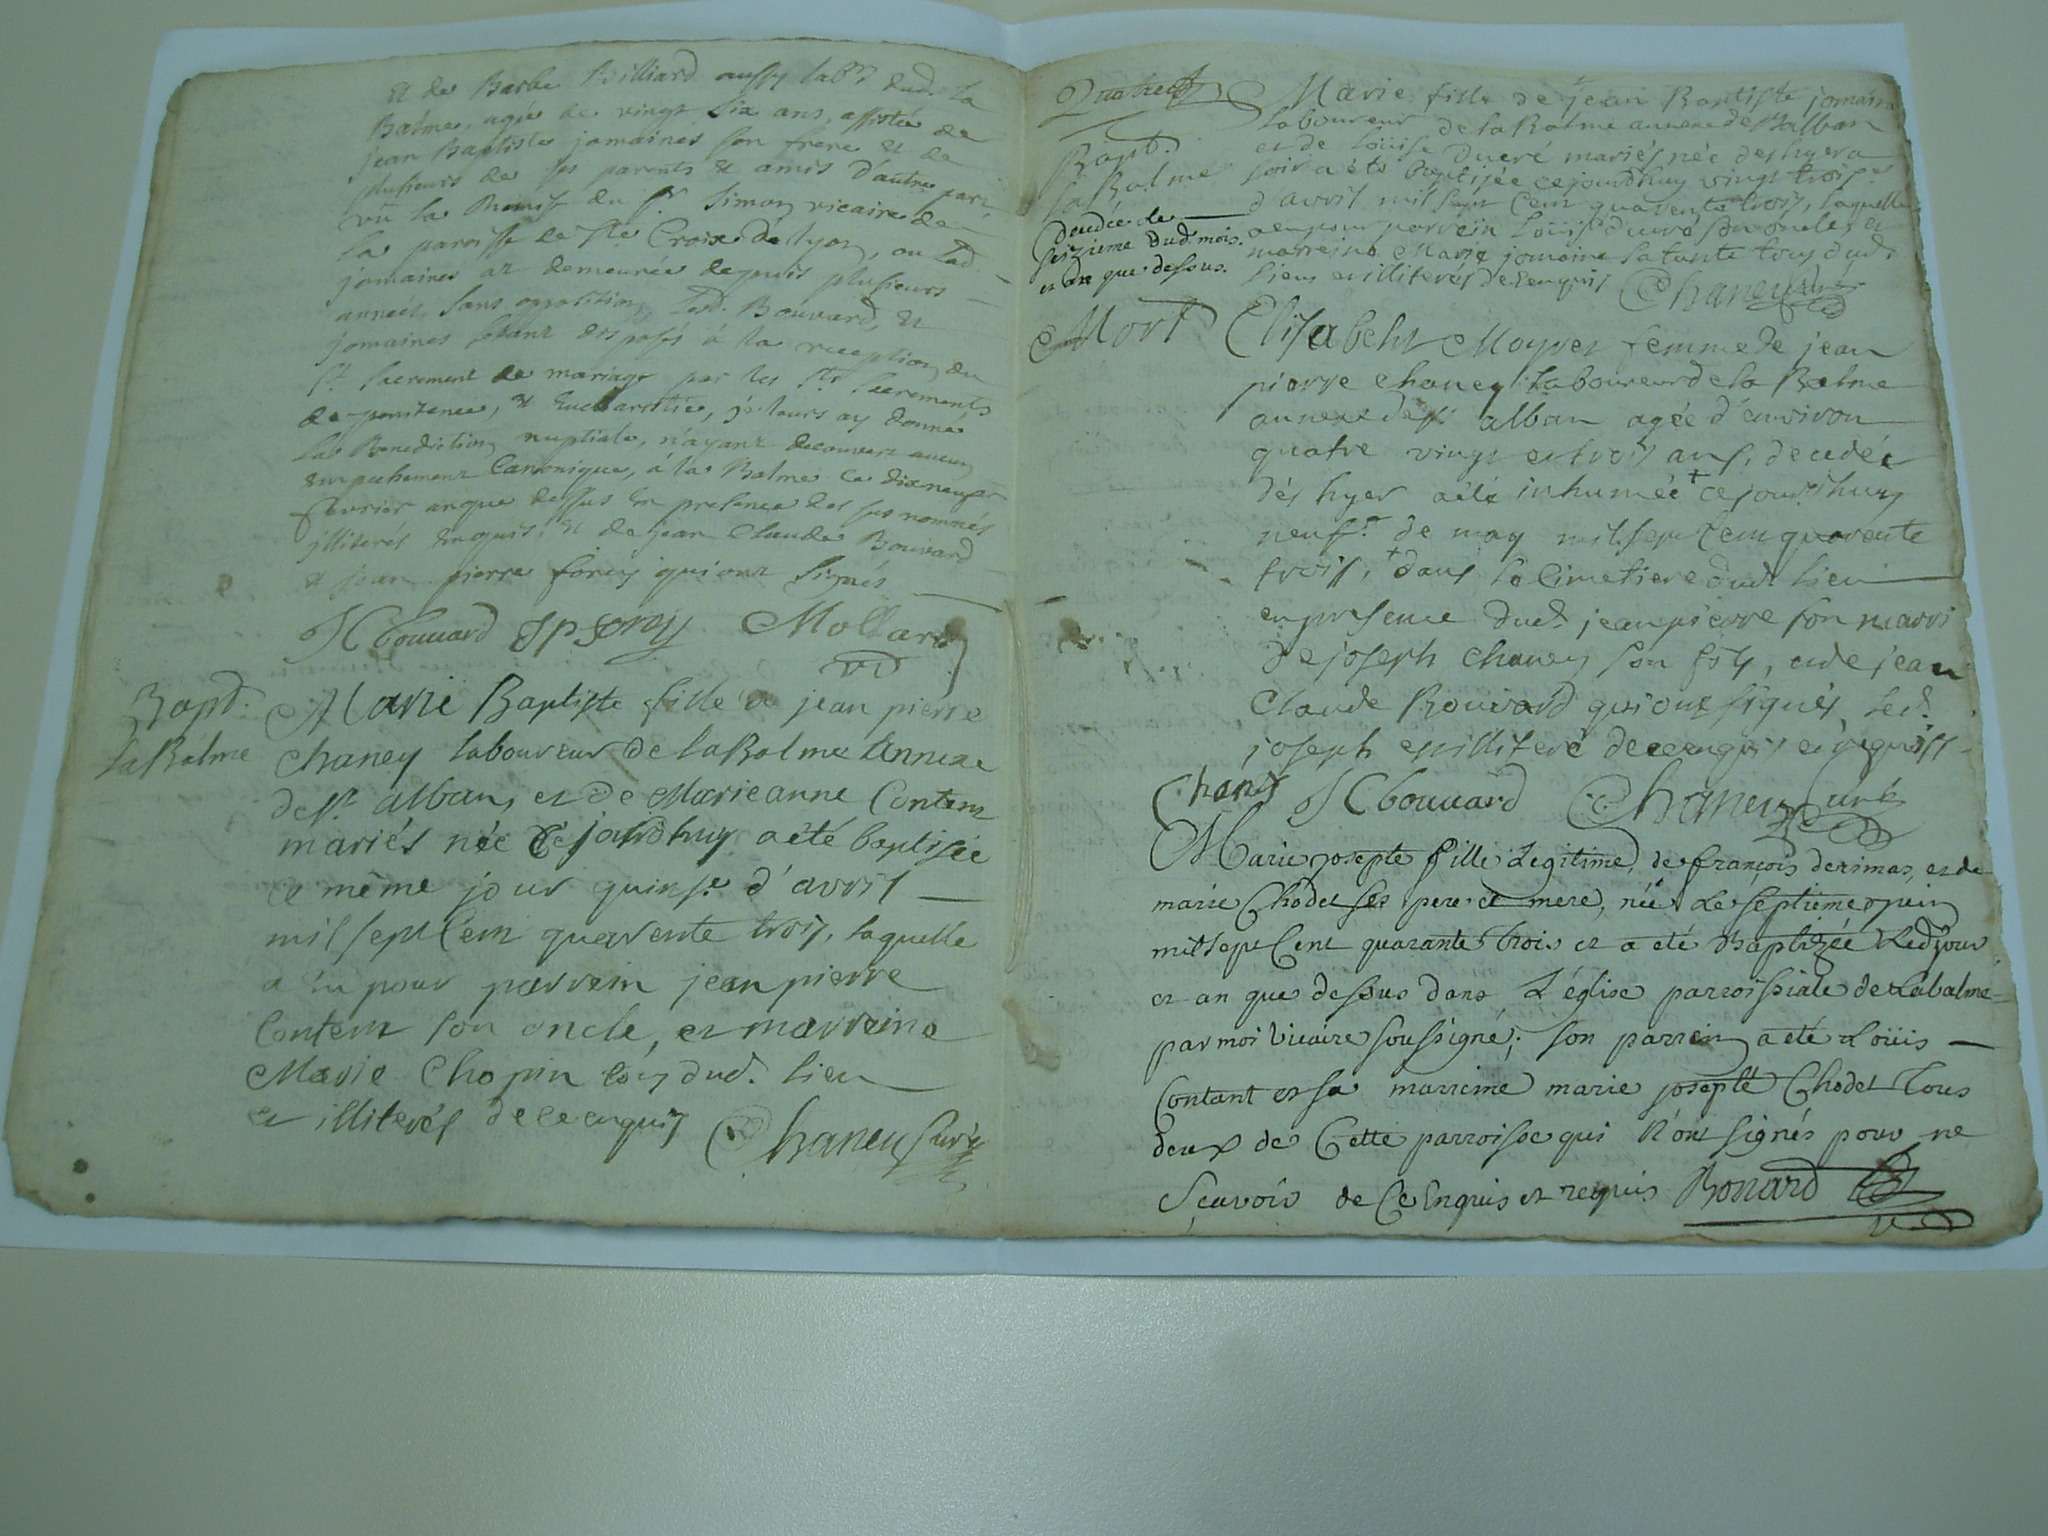 Et de Barbe Billiard aussy labr. dud. la
Balme, agée de vingt six ans, assistée de
jean Baptiste jomaines son frere et de
plusieurs de ses parents & amis d'autre part,
vû la Remise du Sr. Simon vicaire de
la paroisse de Ste Croix de lyon, ou lad.
jomaines at demeurée depuis plusieurs
années, sans oposition, Lesd. Bouvard, &
jomaines s'étant disposés à la reception du
St. Sacrement de mariage par les Sts. Sacrements
de penitence, & Eucharistie, je leurs ay donné
la Benediction nuptiale, n'ayant decouvert aucun
empechement Canonique, à la Balme ce dixneuf
fevrier an que dessus En presence des sus nommés
illiterés Enquis, & de jean Claude Bouvard
& jean pierre qui ont Signés
JC bouuard JP Mollard
vic
Bapt.
la Balme
Marie Baptiste fille à jean pierre
chaney laboureur de la Balme Annexe
de St. alban, et de Marieanne Contem
mariés née Cejourdhuy a été baptisée
ce même jour quinse d'avril
mil sept Cent quarente trois, laquelle
a Eu pour parrein jean pierre
Contem son oncle, et marreine
Marie Chopin tous dud. lieu
et illiterés de ce enquis Chaney Curé
Bapt.
la Balme
decedée le
seizieme dud. mois
et an que dessous.
Marie fille de jean Baptiste jomain
laboureur de la Balme annexe de St alban
et de Loüise Ducré mariés née des hyer a
soir a été baptisée cejourdhuy vingt trois
d'avril mil sept Cent quarente trois, laquelle
a eu pour parrein Loüis Ducré son oncle, et
marreine Marie jomaine sa tante tous dud.
lieu et illiterés de ce enquis Chaney Curé
Mort
Elisabeht Moyret femme de jean
pierre chaney laboureur de la Balme
annexe de St. alban agée d'environ
quatre vingt et trois ans, decedée
dés hyer a été inhumée + cejourdhuy
neuf.e de may mil sept Cent quarente
trois, + dans le Cimetiere dud. lieu
en presence dud. jean pierre son marri
de joseph chaney son fils, et de jean
Claude Bouvard qui ont signés, led.
joseph est illiteré de ce enquis et requis
Chaney JC bouuard Chaney Curé
Marie josepte fille Legitime, de françois derimas, et de
marie Chodet ses pere et mere, née Le septieme juin
mil sept Cent quarante trois et a eté Baptizée Ledt jour
et an que dessus dans L'église parroissiale de Labalme
par moi vicaire soussigné; son parrein a eté Loüis
Contant et sa marreine marie josepte Chodet tous
deux de Cette parroisse qui n'ont signés pour ne
sçavoir de Ce Enquis et requis Bonard